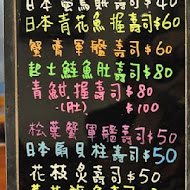 日本
壽司 $40
日本青花魚握壽司 $60
蟹膏軍艦壽司 $60
起士鮭魚肚壽司 $80
青魽握壽司 $80
(肚) $100
松葉蟹軍艦壽司 $50
日本扇貝柱壽司 $50
花枝泉壽司 $50
壽司